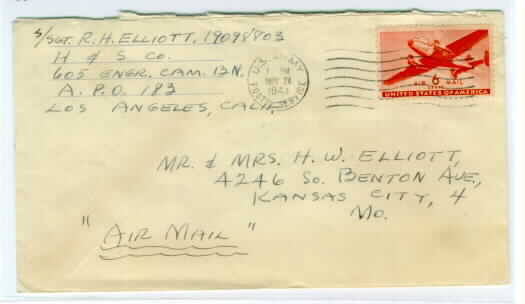 S/SGT. R.H. ELLIOTT, 19098803
H & S CO.
605 ENGR. CAM. BN.
A.P.O. 183
LOS ANGELES, CALIF.
U.S. ARMY
POSTAL SERVICE
PM
1943
AIR 6 MAIL
CENTS
UNITED STATES OF AMERICA
MR. & MRS. H. W. ELLIOTT,
4246 SO. BENTON AVE,
KANSAS CITY, 4
MO.
"AIR MAIL"